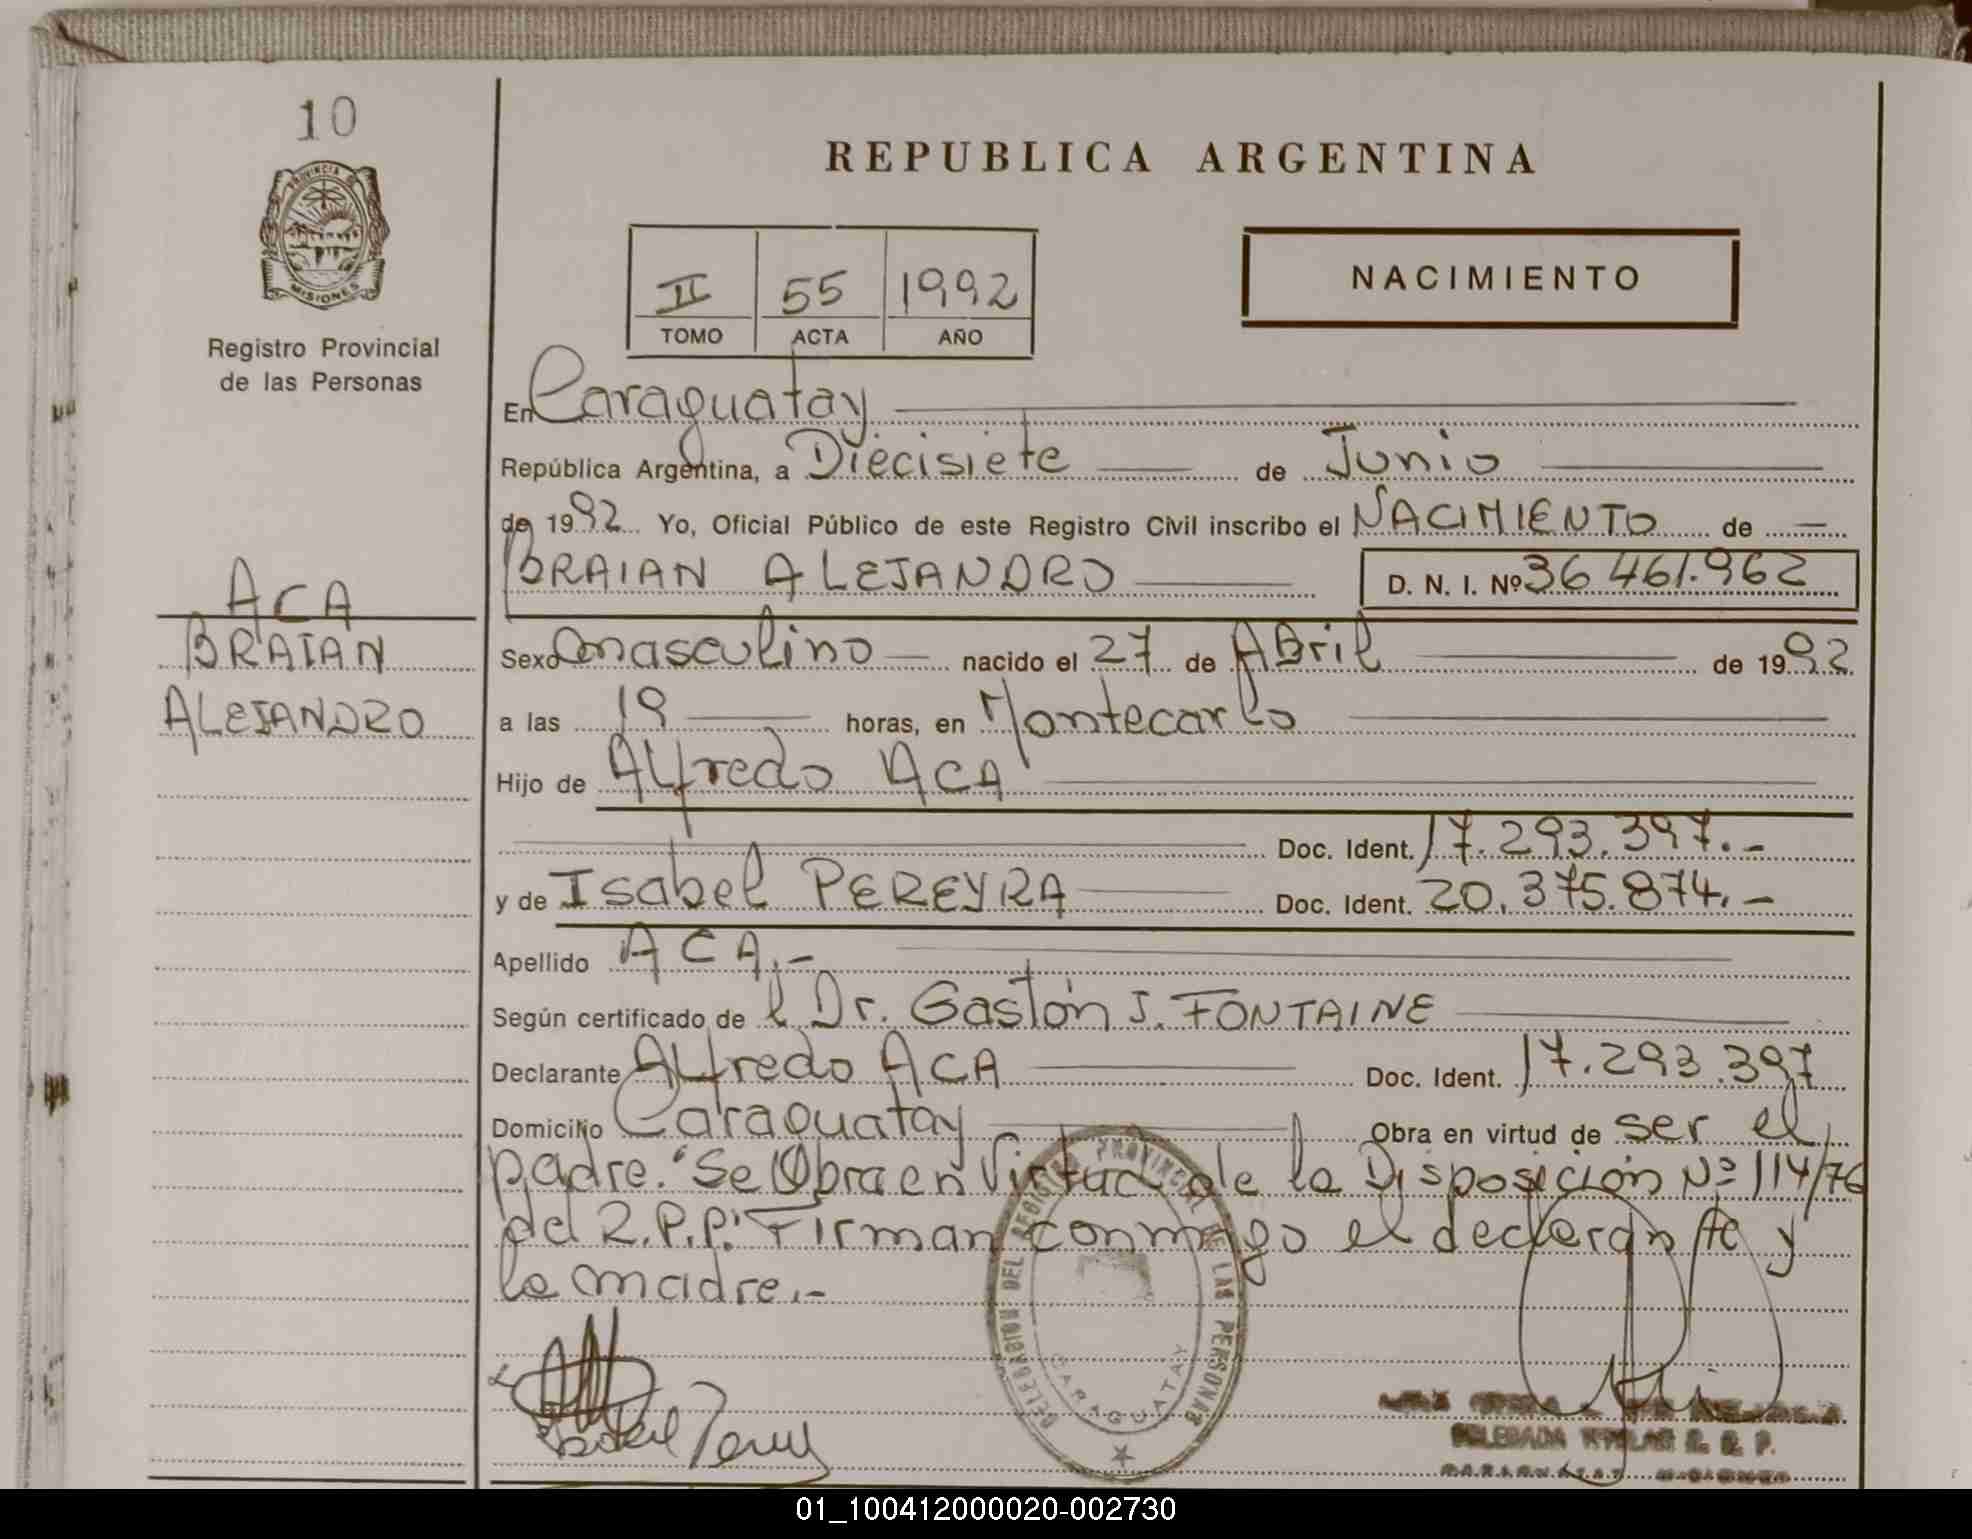 10
PROVINCIA DE
MISIONES
Registro Provincial
de las Personas
ACA
BRAIAN
ALEJANDRO
REPUBLICA ARGENTINA
II 55 1992
TOMO ACTA AÑO
NACIMIENTO
En Caraguatay
República Argentina, a Diecisiete de Junio
de 1992 Yo, Oficial Público de este Registro Civil inscribo el NACIMIENTO de
BRAIAN ALEJANDRO D. N. I. Nº 36 461.962
Sexo masculino nacido el 27 de Abril de 1992
a las 19 horas, en Montecarlo
Hijo de Alfredo ACA
Doc. Ident. 17.293.397.-
y de Isabel PEREYRA Doc. Ident. 20.375.874.-
Apellido ACA.-
Según certificado de l Dr. Gastón J. FONTAINE
Declarante Alfredo ACA Doc. Ident. 17.293.397
Domicilio Caraguatay Obra en virtud de ser el
padre. "Se Obra en Virtud de la Disposición Nº 114/76
del R.P.P." Firman conmigo el declarante y
la madre.-
DELEGACION DEL REGISTRO PROVINCIAL DE LAS PERSONAS
CARAGUATAY
DELEGADA TITULAR R. P. P.
01_100412000020-002730